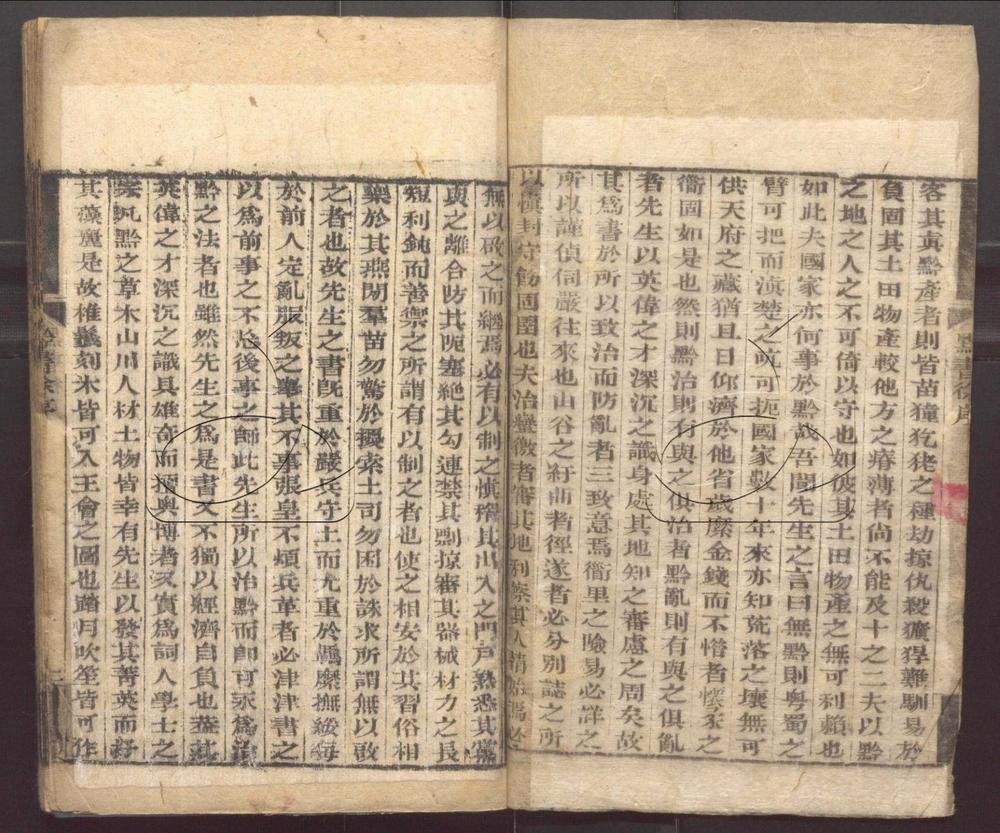 客其真黔產者則皆苗獞狫狇之種劫掠仇殺獷猂難馴易於
負固其土田物產較他方之瘠薄者尚不能及十之二夫以黔
之地之人之不可倚以守也如彼其土田物產之無可利賴也
如此夫國家亦何事於黔哉吾聞先生之言曰無黔則粤蜀之
臂可把而滇楚之吭可扼國家數十年來亦知荒落之壤無可
供天府之藏猶且日仰濟於他省歲縻金錢而不惜者懷柔之
衢固如是也然則黔治則有與之俱治者黔亂則有與之俱亂
者先生以英偉之才深沉之識身處其地知之審慮之周矣故
其為書於所以致治而防亂者三致意焉衢里之險易必詳之
所以謹偵伺嚴往來也山谷之紆曲者徑遂者必分別誌之所
以慎封守飭固圉也夫治蠻徼者審其地利察其人情始焉必
無以啟之而繼焉必有以制之慎稽其出入之門戶熟悉其黨
與之離合防其阨塞絕其勾連禁其剽掠審其器械材力之長
短利鈍而善禦之所謂有以制之者也使之相安於其習俗相
樂於其燕閒羣苗勿驚於擾索土司勿困於誅求所謂無以啟
之者也故先生之書既重於嚴兵守土而尤重於羈縻撫綏每
於前人定亂服叛之舉其不事張皇不煩兵革者必津津書之
以為前事之不忘後事之師此先生所以治黔而即可永為治
黔之法者也雖然先生之為是書又不獨以經濟自負也蓋其
英偉之才深沉之識具雄奇而擅奥博者又實為詞人學士之
宗夙黔之草木山川人材土物皆幸有先生以發其菁英而紓
其藻麗是故椎髻刻木皆可入王會之圖也踏月吹笙皆可作